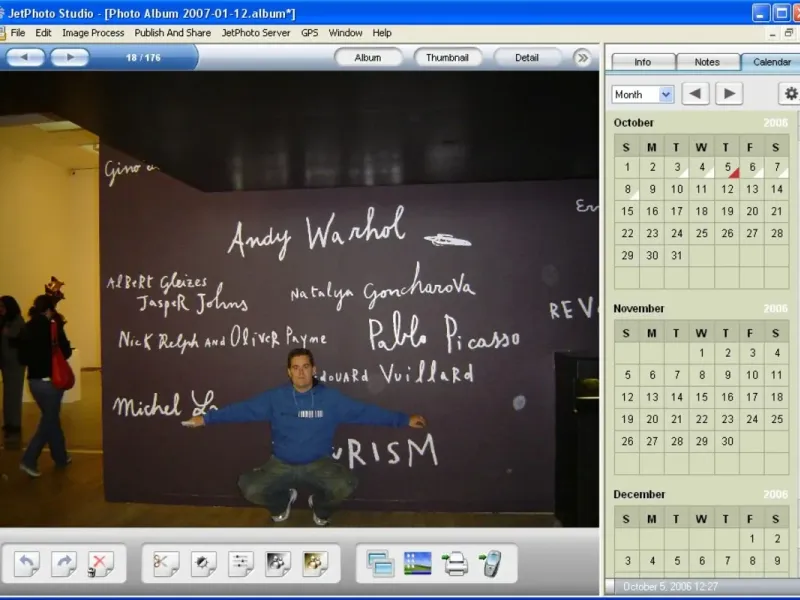 JetPhoto Studio - [Photo Album 2007-01-12.album*]
File Edit Image Process Publish And Share JetPhoto Server GPS Window Help
18 / 176 Album Thumbnail Detail
Info Notes Calendar
Month
Gino
Andy Warhol
Albert Gleizes
Jasper Johns
Natalya Goncharova
Nick Relph and Oliver Payne
Pablo Picasso
REV
douard Vuillard
Michel
URISM
October 2006
S M T W T F S
1 2 3 4 5 6 7
8 9 10 11 12 13 14
15 16 17 18 19 20 21
22 23 24 25 26 27 28
29 30 31
November 2006
S M T W T F S
1 2 3 4
5 6 7 8 9 10 11
12 13 14 15 16 17 18
19 20 21 22 23 24 25
26 27 28 29 30
December 2006
S M T W T F S
1 2
3 4 5 6 7 8 9
October 5, 2006 12:27